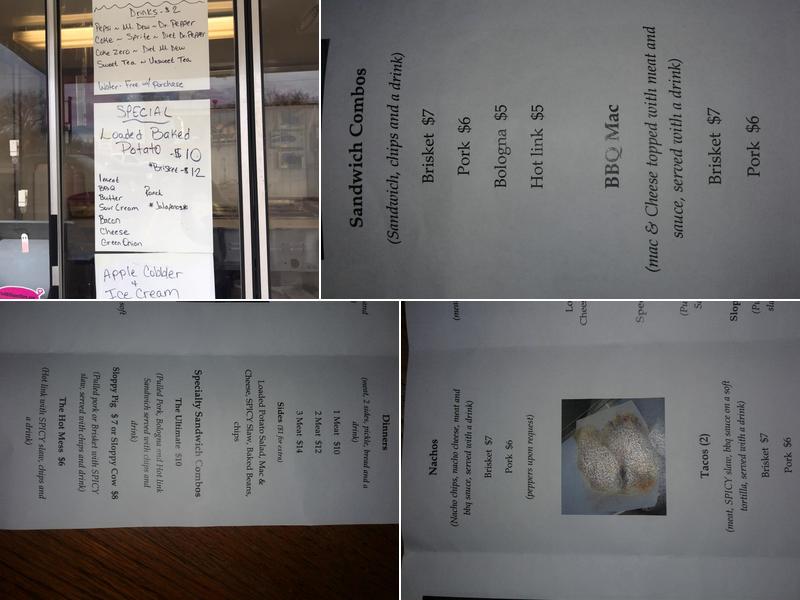 Drinks - $2
Pepsi ~ Mt. Dew ~ Dr. Pepper
Coke ~ Sprite ~ Diet Dr. Pepper
Coke Zero ~ Diet Mt Dew
Sweet Tea ~ Unsweet Tea
Water - Free w/ Purchase
SPECIAL
Loaded Baked
Potato - $10
*Brisket - $12
1 meat
BBQ
Ranch
Butter
Sour Cream
*Jalapenos*
Bacon
Cheese
Green Onion
Apple Cobbler
+
Ice Cream
Sandwich Combos
(Sandwich, chips and a drink)
Brisket $7
Pork $6
Bologna $5
Hot link $5
BBQ Mac
(mac & Cheese topped with meat and
sauce, served with a drink)
Brisket $7
Pork $6
Dinners
(meat, 2 sides, pickle, bread and a
drink)
1 Meat $10
2 Meat $12
3 Meat $14
Sides ($1 for extra)
Loaded Potato Salad, Mac &
Cheese, SPICY Slaw, Baked Beans,
chips
Specialty Sandwich Combos
The Ultimate $10
(Pulled Pork, Bologna and Hot link
Sandwich served with chips and
drink)
Sloppy Pig $ 7 or Sloppy Cow $8
(Pulled pork or Brisket with SPICY
slaw, served with chips and drink)
The Hot Mess $6
(Hot link with SPICY slaw, chips and
a drink)
Nachos
(Nacho chips, nacho cheese, meat and
bbq sauce, served with a drink)
Brisket $7
Pork $6
(peppers upon request)
Tacos (2)
(meat, SPICY slaw, bbq sauce on a soft
tortilla, served with a drink)
Brisket $7
Pork $6